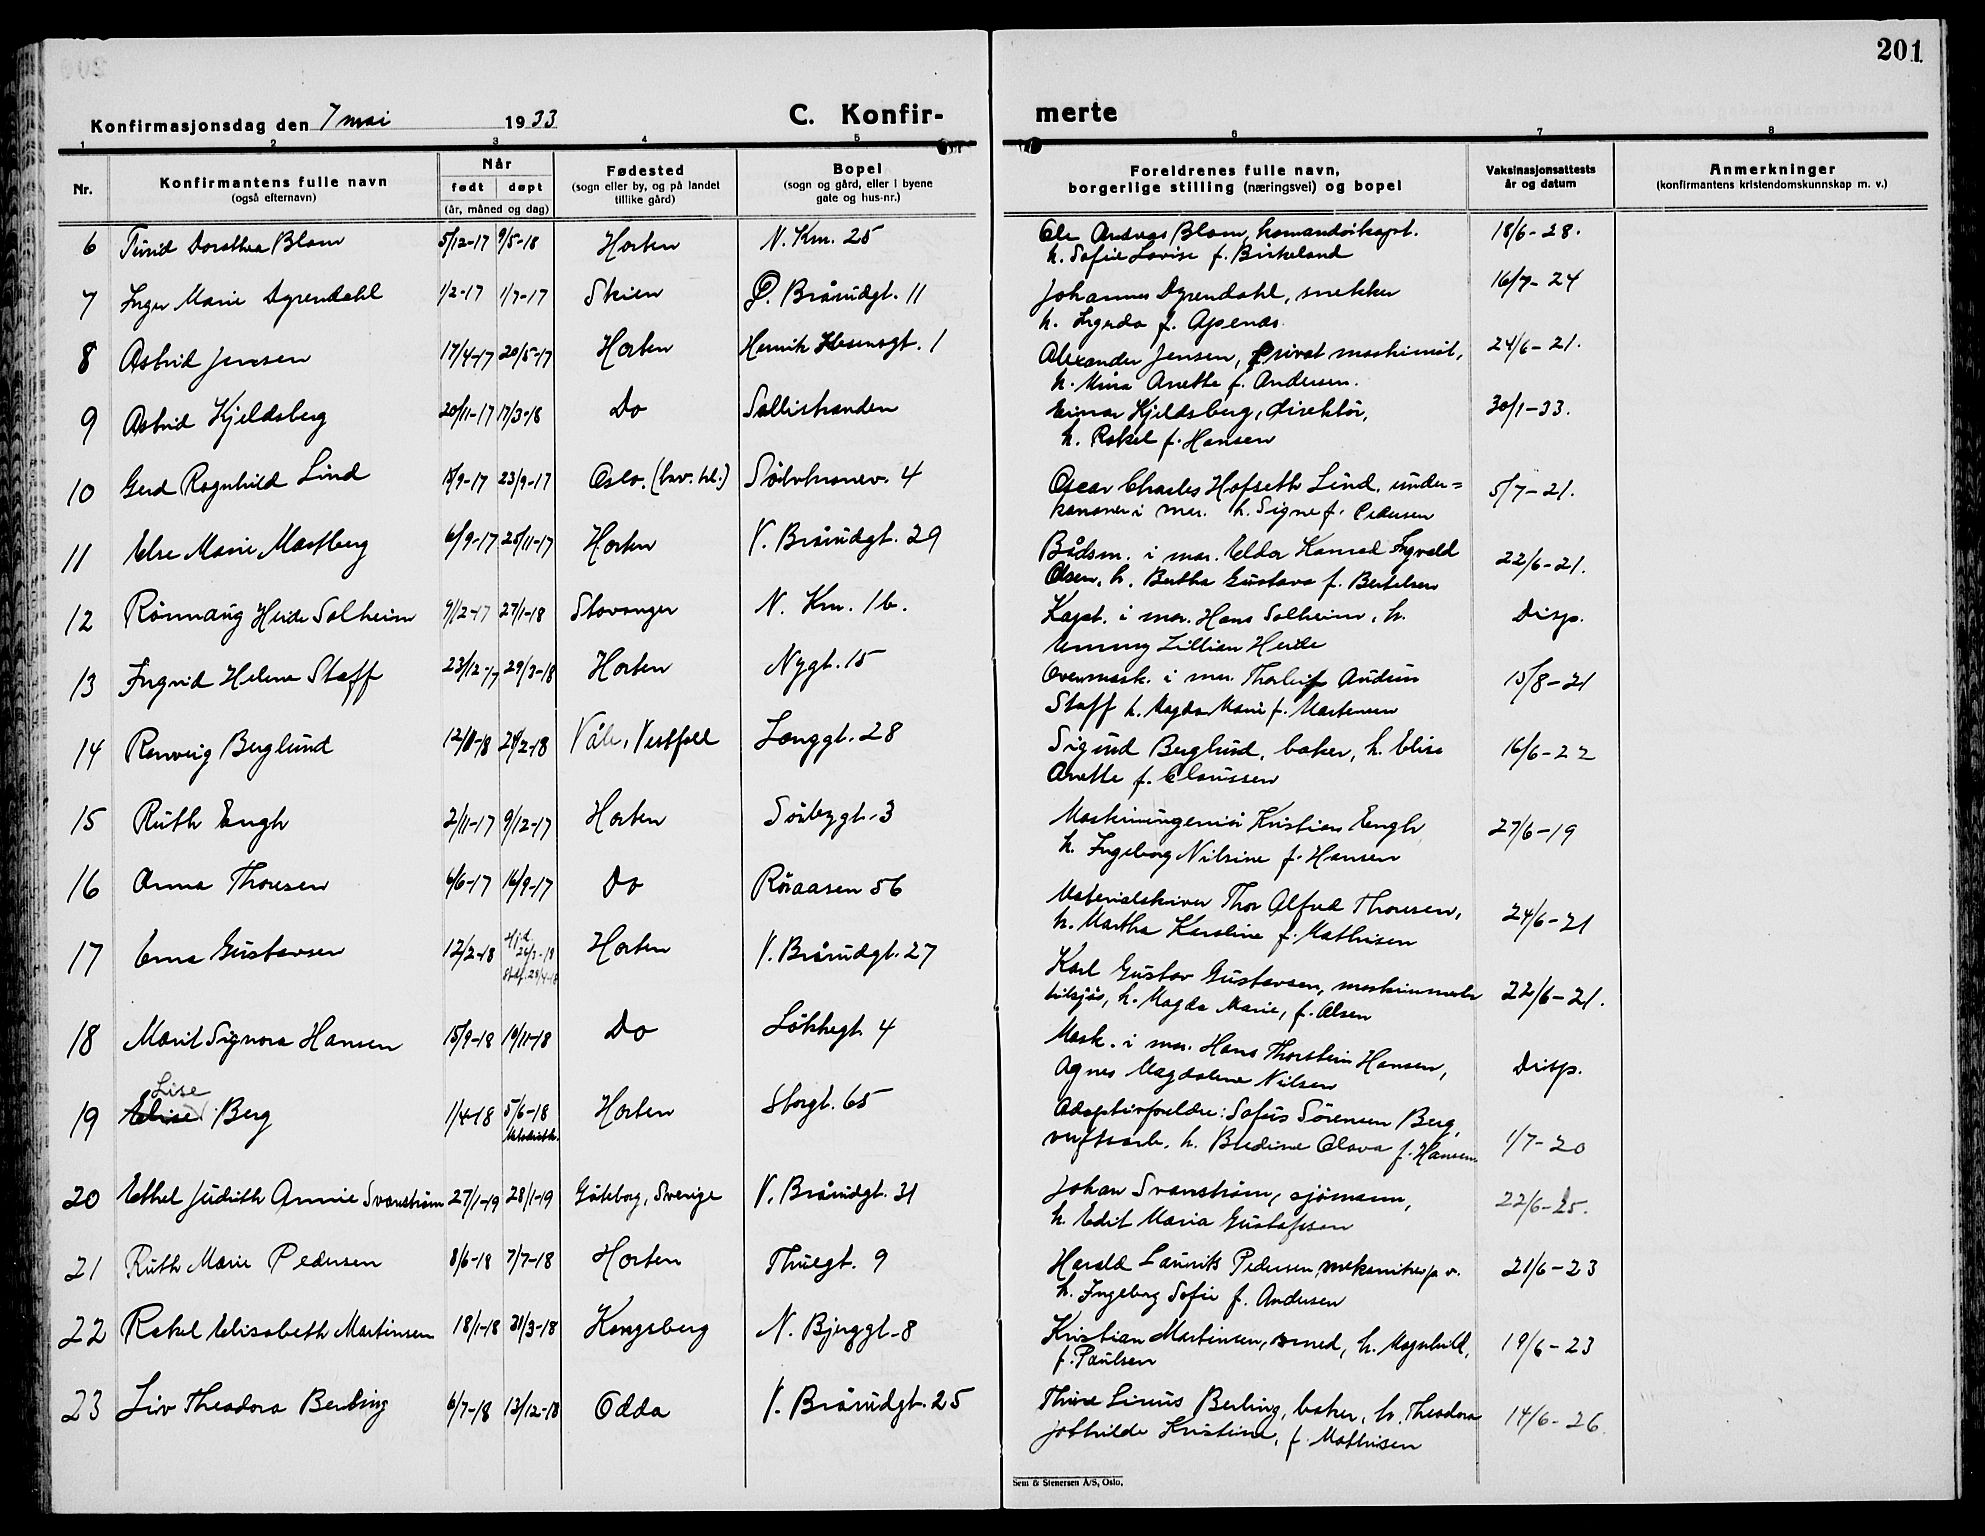 201
Konfirmasjonsdag den 7 mai 1933
C. Konfir-
merte
1 2 3 4 5 6 7 8
Nr.
Konfirmantens fulle navn
(også efternavn)
Når
født døpt
(år, måned og dag)
Fødested
(sogn eller by, og på landet
tillike gård)
Bopel
(sogn og gård, eller i byene
gate og hus-nr.)
Foreldrenes fulle navn,
borgerlige stilling (næringsvei) og bopel
Vaksinasjonsattests
år og datum
Anmerkninger
(konfirmantens kristendomskunnskap m. v.)
6 Turid Dorothea Blom 5/12-17 9/5-18 Horten N. Km. 25
Ole Andreas Blom, komandörkapt. 18/6-28.
h. Sofie Lovise f. Birkeland
7 Inger Marie Dyrendahl 1/2-17 1/7-17 Skien P. Brårudgt. 11
Johannes Dyrendahl, snekker 16/7-24
h. Ingeda f. Apenæs.
8 Astrid Jensen 17/4-17 20/5-17 Horten Henrik Ibsensgt. 1
Alexander Jensen, privat maskinist, 24/6-21.
h. Mina Anette f. Andersen.
9 Astrid Kjeldsberg 20/11-17 17/3-18 Do Sollistranden
Einar Kjeldsberg, direktör, 30/1-33.
h. Rakel f. Hansen
10 Gerd Ragnhild Lind /9-17 23/9-17 Oslo. 4
Oscar Charles Hofseth Lind. under= 5/7-21.
kanoner i mar. h. Signe f. Pedersen
11 Else Marie Mastberg 6/9-17 25/11-17 Horten V. Brårudgt. 29
Bådsm. i mar. Eldor Konrad Ingvald 22/6-21.
Olsen, h. Bertha Gustava f. Bertelsen
12 Rönnaug Heide Solheim 9/12-17 27/1-18 Stavanger N. Km. 16.
Kapt. i mar. Hans Solheim, h. Disp.
Emmy Lillian Heide
13 Ingrid Helene Staff 23/12-17 29/3-18 Horten Nygt. 15
Overmask. i mar. Thorleif Audun 15/8-21
Staff h. Magda Marie f. Martensen
14 Ranveig Berglund 12/-18 2/2-18 Våle, Vestfold Langgt. 28
Sigurd Berglund, baker, h. Elise 16/6-22
Anette f. Claussen
15 Ruth Engh 2/11-17 9/12-17 Horten Sörbygt. 3
Maskiningeniör Kristian Engh 27/6-19
h. Ingeborg Nilsine f. Hansen
16 Anna Thoresen 6/6-17 16/9-17 Do Röraasen 56
Materialskriver Thor Alfred Thoresen, 24/6-21
h. Martha Karoline f. Mathisen
17 Erna Gustavsen 12/2-18 Hjd. 26/2-18 Horten V. Brårudgt. 27
Stadf. 28/4-18
Karl Gustav Gustavsen, 22/6-21.
h. Magda Marie, f. Olsen
18 Marit Signora Hansen 15/9-18 10/11-18 Do Lökkegt. 4
Mask. i mar. Hans Thorstein Hansen, Disp.
Agnes Magdalene Nilsen
Lise
19 Elise Berg 1/4-18 5/6-18 Horten Storgt. 65
Metodistk.
Adoptivforeldre: Sofus Sörensen Berg, 1/7-20
verftsarb. h. Bredine Olava f. Hansen
20 Ethel Judith Annie Svanström 27/1-19 28/1-19 Göteborg, Sverige V. Brårudgt. 31
Johan Svanström, sjömann, 22/6-25.
h. Edit Maria Gustafsson
21 Ruth Marie Pedersen 8/6-18 7/7-18 Horten Thuegt. 9
Harald Laurits Pedersen mekaniker p. v. 21/6-23
h. Ingeborg Sofie f. Andersen
22 Rakel Elisabeth Martinsen 18/1-18 31/3-18 Kongsberg N. Bjerggt. 8
Kristian Martinsen, smed, h. Magnhild, 19/6-23
f. Paulsen
23 Liv Theodora Berling 6/7-18 13/12-18 Odda V. Brårudgt. 25
Thure Linus Berling, baker, h. Theodora 14/6-26
Jothilde Kristine, f. Mathisen
Sem & Stenersen A/S, Oslo.